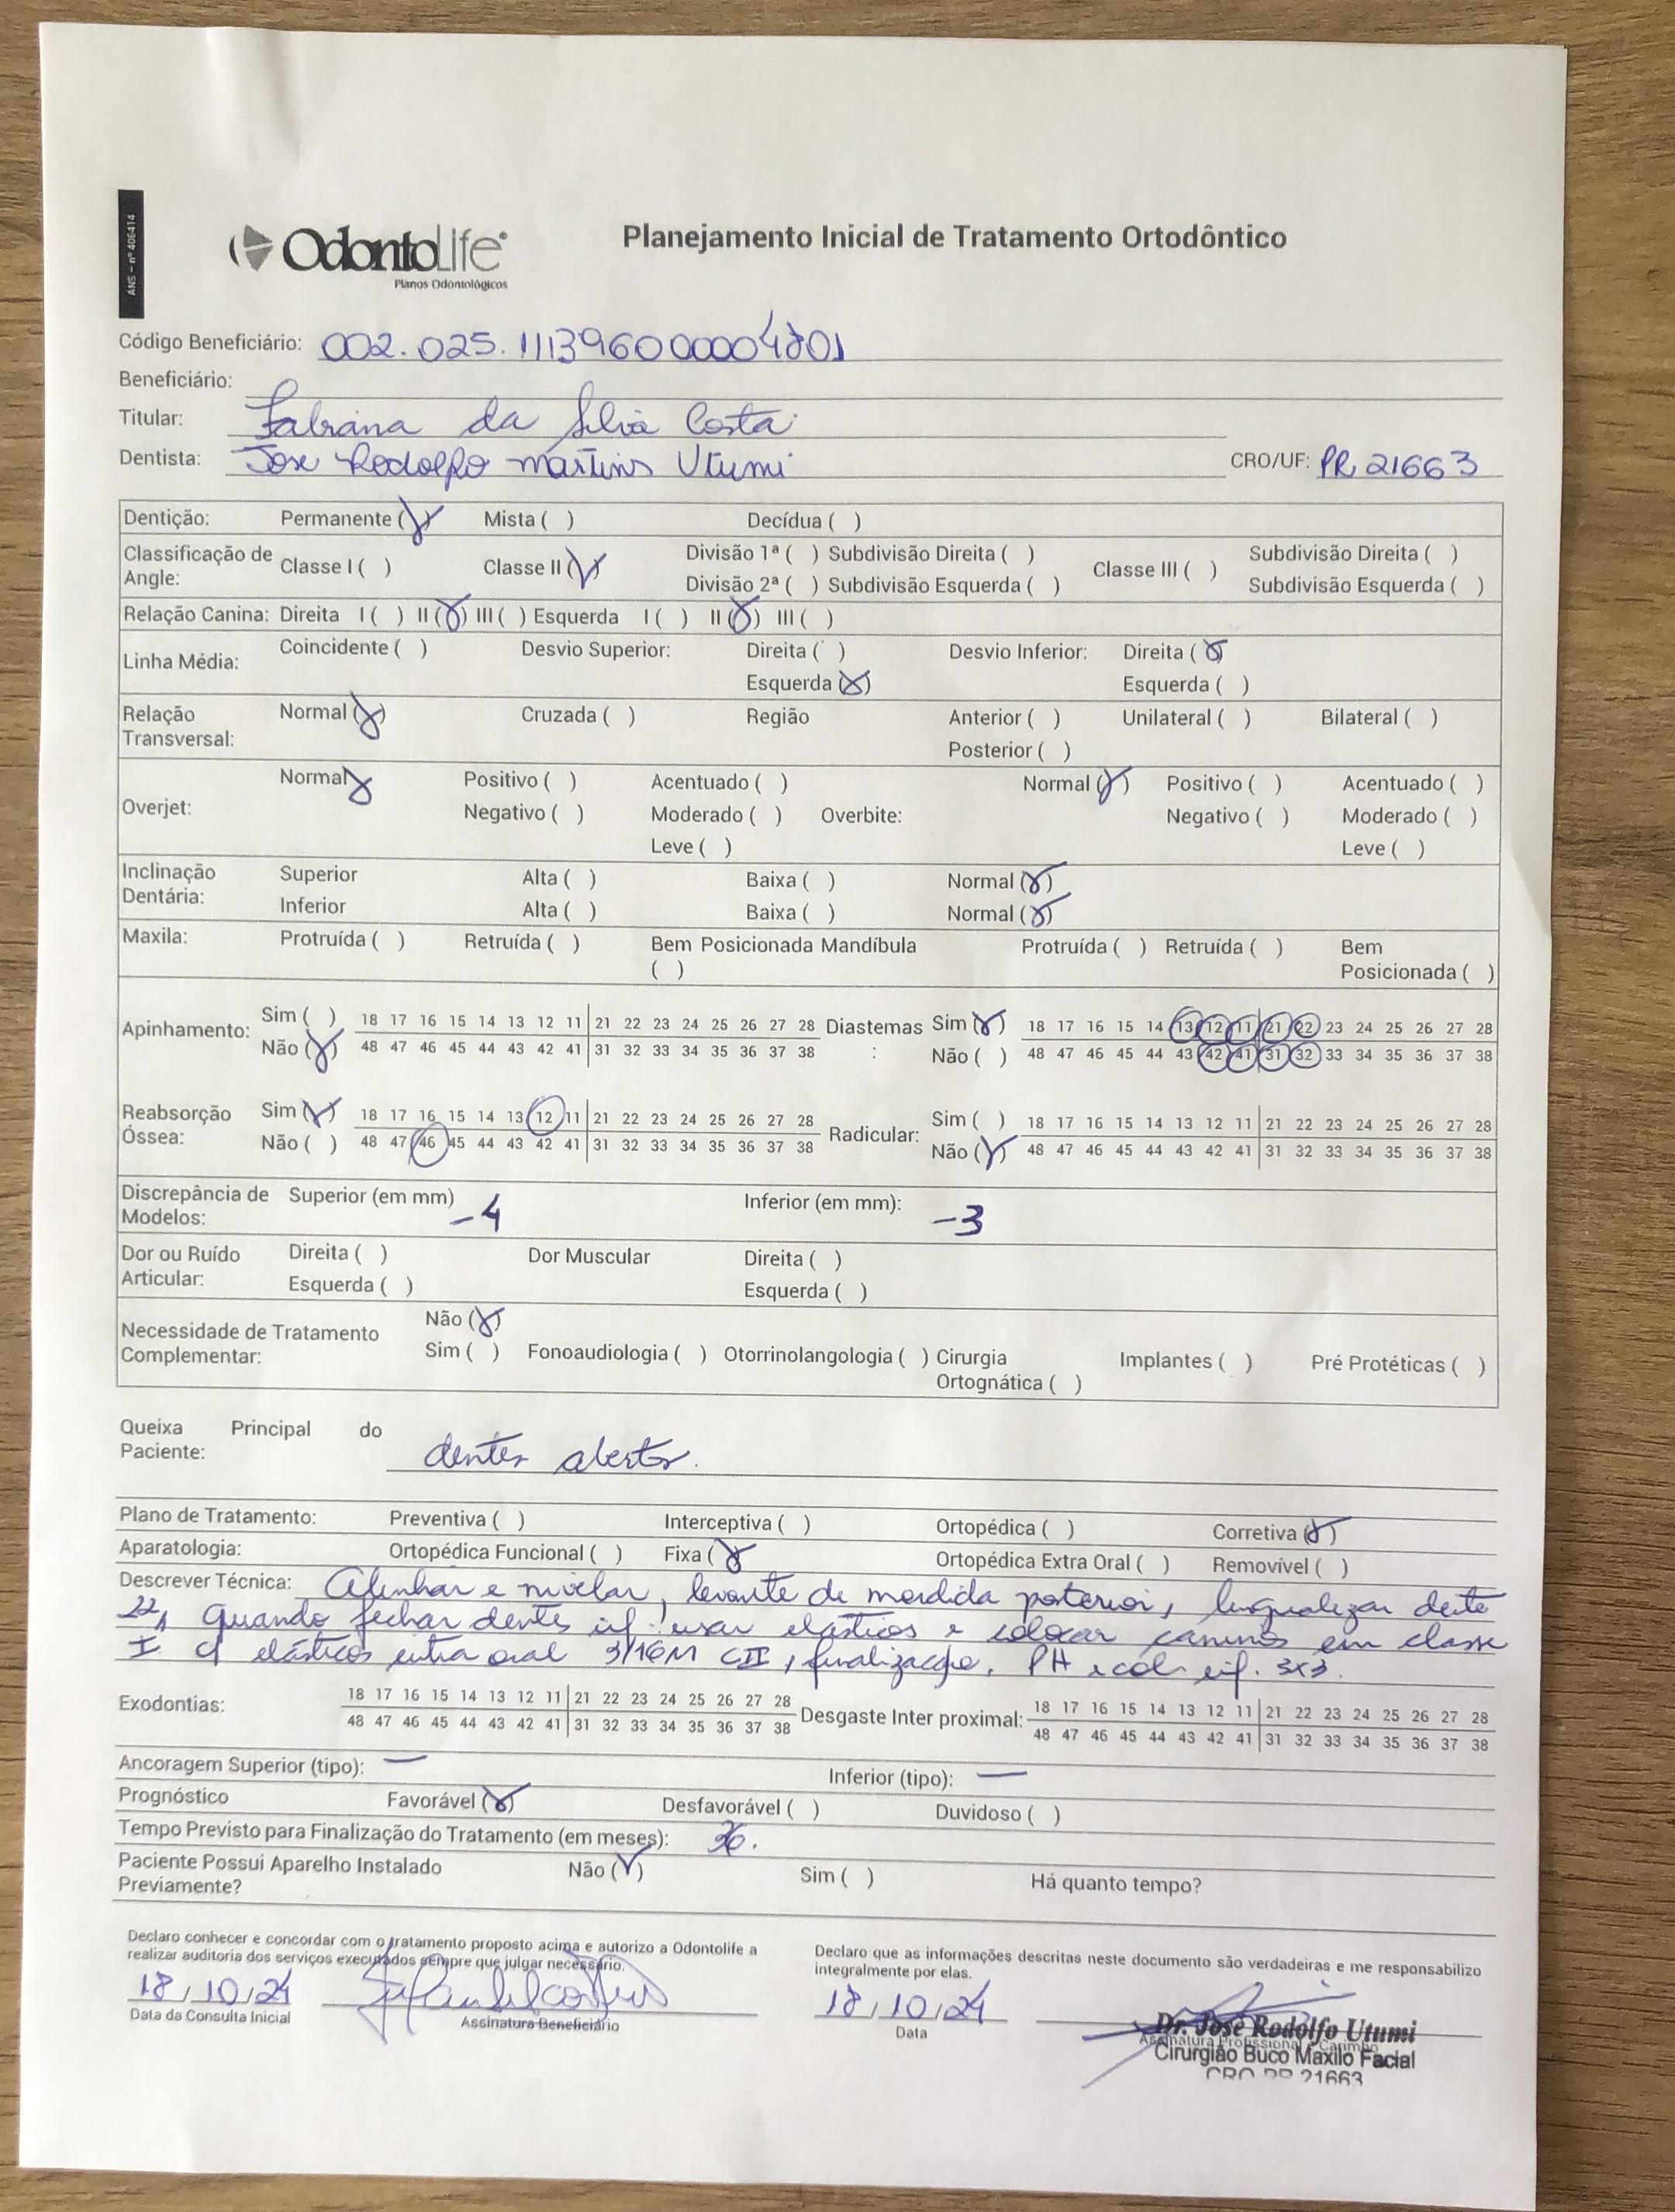 ANS - nº 406414
OdontoLife®
Planos Odontológicos
Planejamento Inicial de Tratamento Ortodôntico
Código Beneficiário: 002.025.11139600004801
Beneficiário:
Titular: Fabiana da Silva Costa
Dentista: Jose Rodolfo Martins Utumi CRO/UF: PR 21663
Dentição: Permanente (X) Mista ( ) Decídua ( )
Classificação de Angle: Classe I ( ) Classe II (X) Divisão 1ª ( ) Subdivisão Direita ( ) Classe III ( ) Subdivisão Direita ( )
Divisão 2ª ( ) Subdivisão Esquerda ( ) Subdivisão Esquerda ( )
Relação Canina: Direita I ( ) II (X) III ( ) Esquerda I ( ) II (X) III ( )
Linha Média: Coincidente ( ) Desvio Superior: Direita ( ) Desvio Inferior: Direita (X)
Esquerda (X) Esquerda ( )
Relação Transversal: Normal (X) Cruzada ( ) Região Anterior ( ) Unilateral ( ) Bilateral ( )
Posterior ( )
Overjet: Normal X Positivo ( ) Acentuado ( ) Overbite: Normal (X) Positivo ( ) Acentuado ( )
Negativo ( ) Moderado ( ) Negativo ( ) Moderado ( )
Leve ( ) Leve ( )
Inclinação Dentária: Superior Alta ( ) Baixa ( ) Normal (X)
Inferior Alta ( ) Baixa ( ) Normal (X)
Maxila: Protruída ( ) Retruída ( ) Bem Posicionada ( ) Mandíbula Protruída ( ) Retruída ( ) Bem Posicionada ( )
Apinhamento: Sim ( ) 18 17 16 15 14 13 12 11 21 22 23 24 25 26 27 28 Diastemas: Sim (X) 18 17 16 15 14 13 12 11 21 22 23 24 25 26 27 28
Não (X) 48 47 46 45 44 43 42 41 31 32 33 34 35 36 37 38 Não ( ) 48 47 46 45 44 43 42 41 31 32 33 34 35 36 37 38
Reabsorção Óssea: Sim (X) 18 17 16 15 14 13 12 11 21 22 23 24 25 26 27 28 Radicular: Sim ( ) 18 17 16 15 14 13 12 11 21 22 23 24 25 26 27 28
Não ( ) 48 47 46 45 44 43 42 41 31 32 33 34 35 36 37 38 Não (X) 48 47 46 45 44 43 42 41 31 32 33 34 35 36 37 38
Discrepância de Modelos: Superior (em mm) -4 Inferior (em mm): -3
Dor ou Ruído Articular: Direita ( ) Dor Muscular Direita ( )
Esquerda ( ) Esquerda ( )
Necessidade de Tratamento Complementar: Não (X)
Sim ( ) Fonoaudiologia ( ) Otorrinolangologia ( ) Cirurgia Ortognática ( ) Implantes ( ) Pré Protéticas ( )
Queixa Principal do Paciente: dentes abertos.
Plano de Tratamento: Preventiva ( ) Interceptiva ( ) Ortopédica ( ) Corretiva (X)
Aparatologia: Ortopédica Funcional ( ) Fixa (X) Ortopédica Extra Oral ( ) Removível ( )
Descrever Técnica: Alinhar e nivelar, levante de mordida posterior, lingualizar dente
22, Quando fechar dentes inf. usar elásticos e colocar caninos em classe
I c/ elásticos intra oral 3/16M CII, finalização. PH e col. inf. 3x3.
Exodontias: 18 17 16 15 14 13 12 11 21 22 23 24 25 26 27 28 Desgaste Inter proximal: 18 17 16 15 14 13 12 11 21 22 23 24 25 26 27 28
48 47 46 45 44 43 42 41 31 32 33 34 35 36 37 38 48 47 46 45 44 43 42 41 31 32 33 34 35 36 37 38
Ancoragem Superior (tipo): — Inferior (tipo): —
Prognóstico Favorável (X) Desfavorável ( ) Duvidoso ( )
Tempo Previsto para Finalização do Tratamento (em meses): 36.
Paciente Possui Aparelho Instalado Previamente? Não (X) Sim ( ) Há quanto tempo?
Declaro conhecer e concordar com o tratamento proposto acima e autorizo a Odontolife a
realizar auditoria dos serviços executados sempre que julgar necessário.
18/10/24
Data da Consulta Inicial Assinatura Beneficiário
Declaro que as informações descritas neste documento são verdadeiras e me responsabilizo
integralmente por elas.
18/10/24
Data Assinatura Profissional - Carimbo
Dr. José Rodolfo Utumi
Cirurgião Buco Maxilo Facial
CRO PR 21663